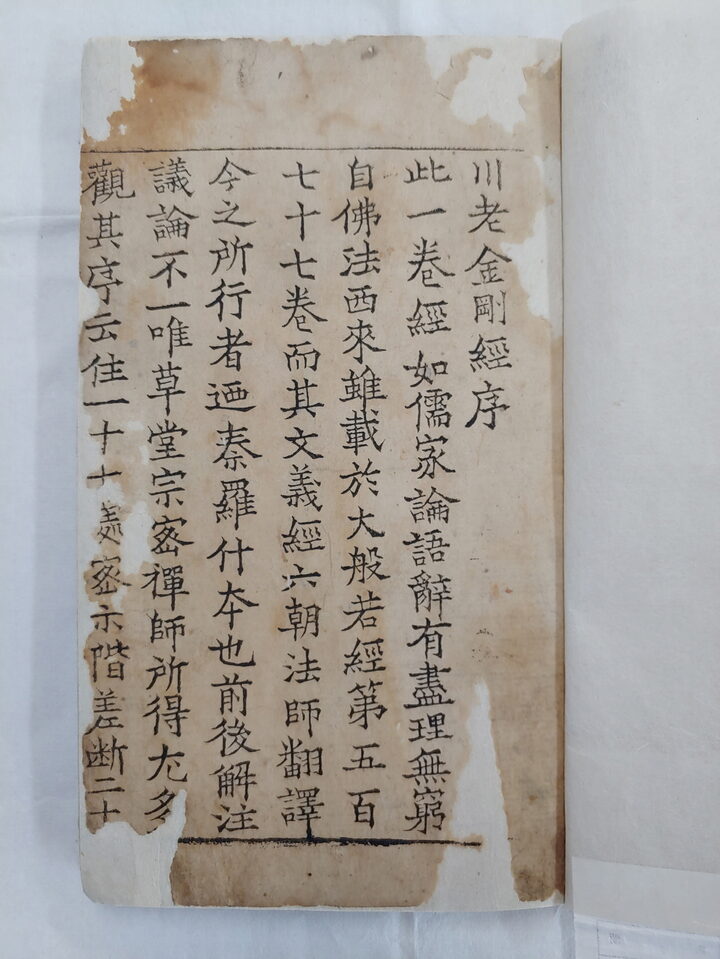 川老金剛經序
此一卷經如儒家論語辭有盡理無窮
自佛法西來雖載於大般若經第五百
七十七卷而其文義經六朝法師翻譯
今之所行者迺秦羅什本也前後解注
議論不一唯草堂宗密禪師所得尤多
觀其序云住一十 密示階差断二十